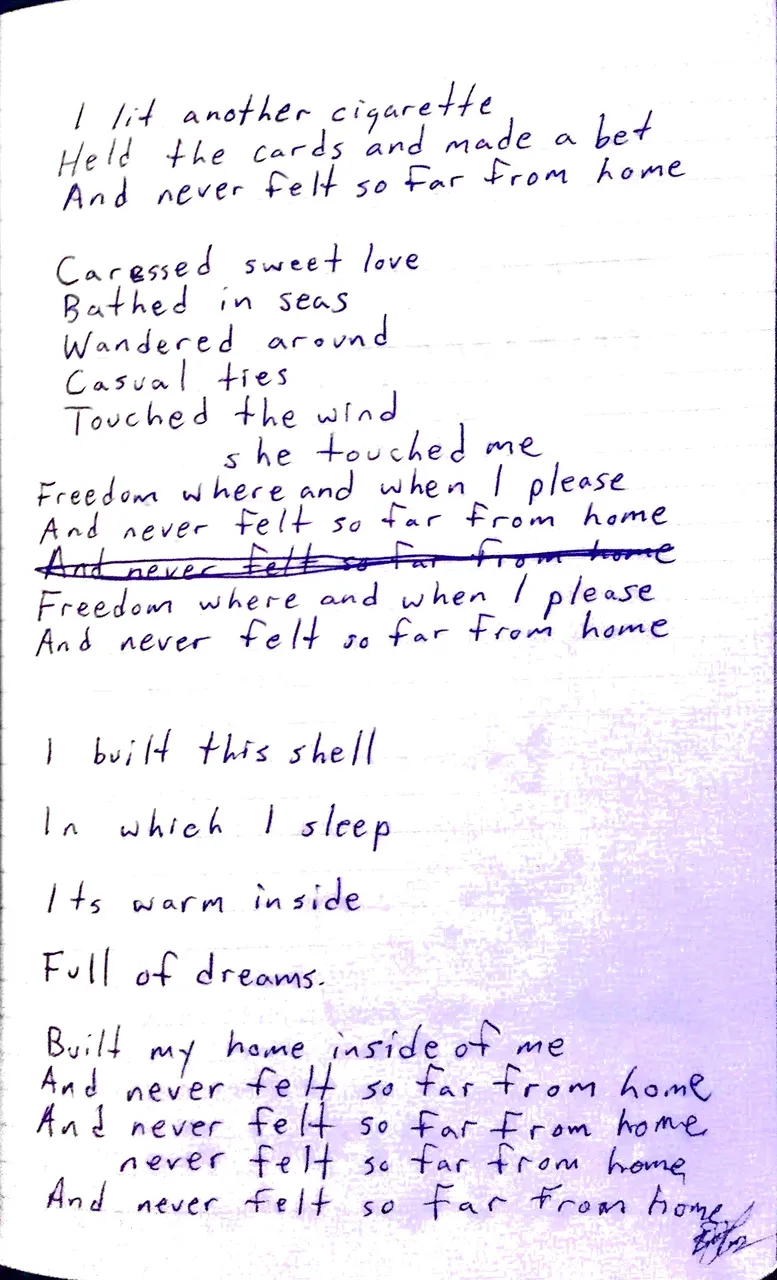 I lit another cigarette
Held the cards and made a bet
And never felt so far from home
Caressed sweet love
Bathed in seas
Wandered around
Casual ties
Touched the wind
she touched me
Freedom where and when I please
And never felt so far from home
And never felt so far from home
Freedom where and when I please
And never felt so far from home
I built this shell
In which I sleep
Its warm inside
Full of dreams.
Built my home inside of me
And never felt so far from home
And never felt so far from home
never felt so far from home
And never felt so far from home